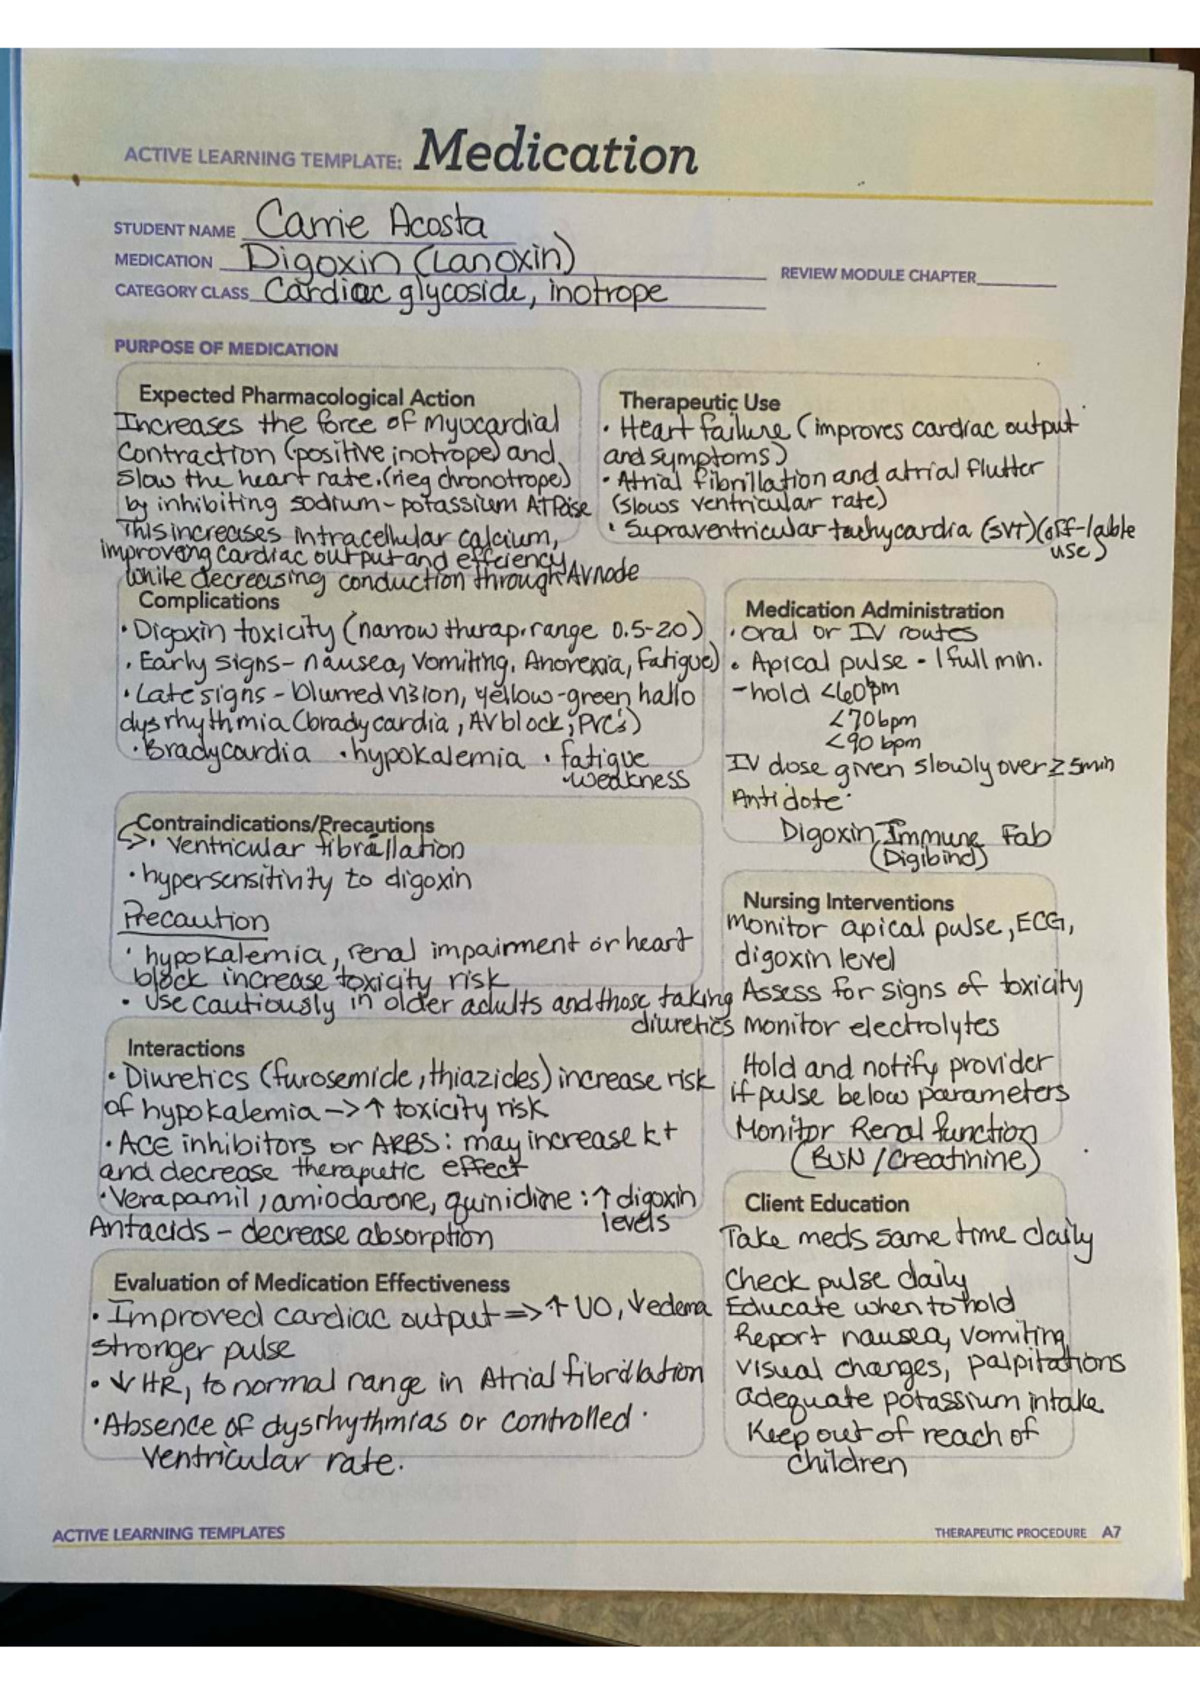 ACTIVE LEARNING TEMPLATE: Medication
STUDENT NAME Carrie Acosta
MEDICATION Digoxin (Lanoxin)
REVIEW MODULE CHAPTER
CATEGORY CLASS Cardiac glycoside, inotrope
PURPOSE OF MEDICATION
Expected Pharmacological Action
Increases the force of myocardial
Contraction (positive inotrope) and
slow the heart rate. (neg chronotrope)
by inhibiting sodium-potassium ATPase
This increases intracellular calcium,
improving cardiac output and efficiency
while decreasing conduction through AV node
Therapeutic Use
• Heart failure (improves cardiac output
and symptoms)
• Atrial fibrillation and atrial flutter
(slows ventricular rate)
• Supraventricular tachycardia (SVT) (off-lable
use)
Complications
• Digoxin toxicity (narrow therap. range 0.5-2.0)
• Early signs - nausea, vomiting, Anorexia, Fatigue)
• Late signs - blurred vision, yellow-green hallo
dysrhythmia (bradycardia, AV block, PVC's)
• Bradycardia • hypokalemia • fatigue
• weakness
Medication Administration
• oral or IV routes
• Apical pulse - 1 full min.
- hold <60 bpm
<70 bpm
<90 bpm
IV dose given slowly over ≥ 5min
Antidote:
Digoxin Immune Fab
(Digibind)
Contraindications/Precautions
• Ventricular fibrillation
• hypersensitivity to digoxin
Precaution
• hypokalemia, renal impairment or heart
block increase toxicity risk
• Use cautiously in older adults and those taking
diuretics
Nursing Interventions
Monitor apical pulse, ECG,
digoxin level
Assess for signs of toxicity
monitor electrolytes
Hold and notify provider
if pulse below parameters
Monitor Renal function
(BUN / Creatinine)
Interactions
• Diuretics (furosemide, thiazides) increase risk
of hypokalemia -> ↑ toxicity risk
• ACE inhibitors or ARBS: may increase k+
and decrease theraputic effect
• Verapamil, amiodarone, quinidine: ↑ digoxin
levels
Antacids - decrease absorption
Client Education
Take meds same time daily
Check pulse daily
Educate when to hold
Report nausea, vomiting
visual changes, palpitations
adequate potassium intake
Keep out of reach of
children
Evaluation of Medication Effectiveness
• Improved cardiac output => ↑ UO, ↓ edema
stronger pulse
• ↓ HR, to normal range in Atrial fibrillation
• Absence of dysrhythmias or controlled
Ventricular rate.
ACTIVE LEARNING TEMPLATES
THERAPEUTIC PROCEDURE A7